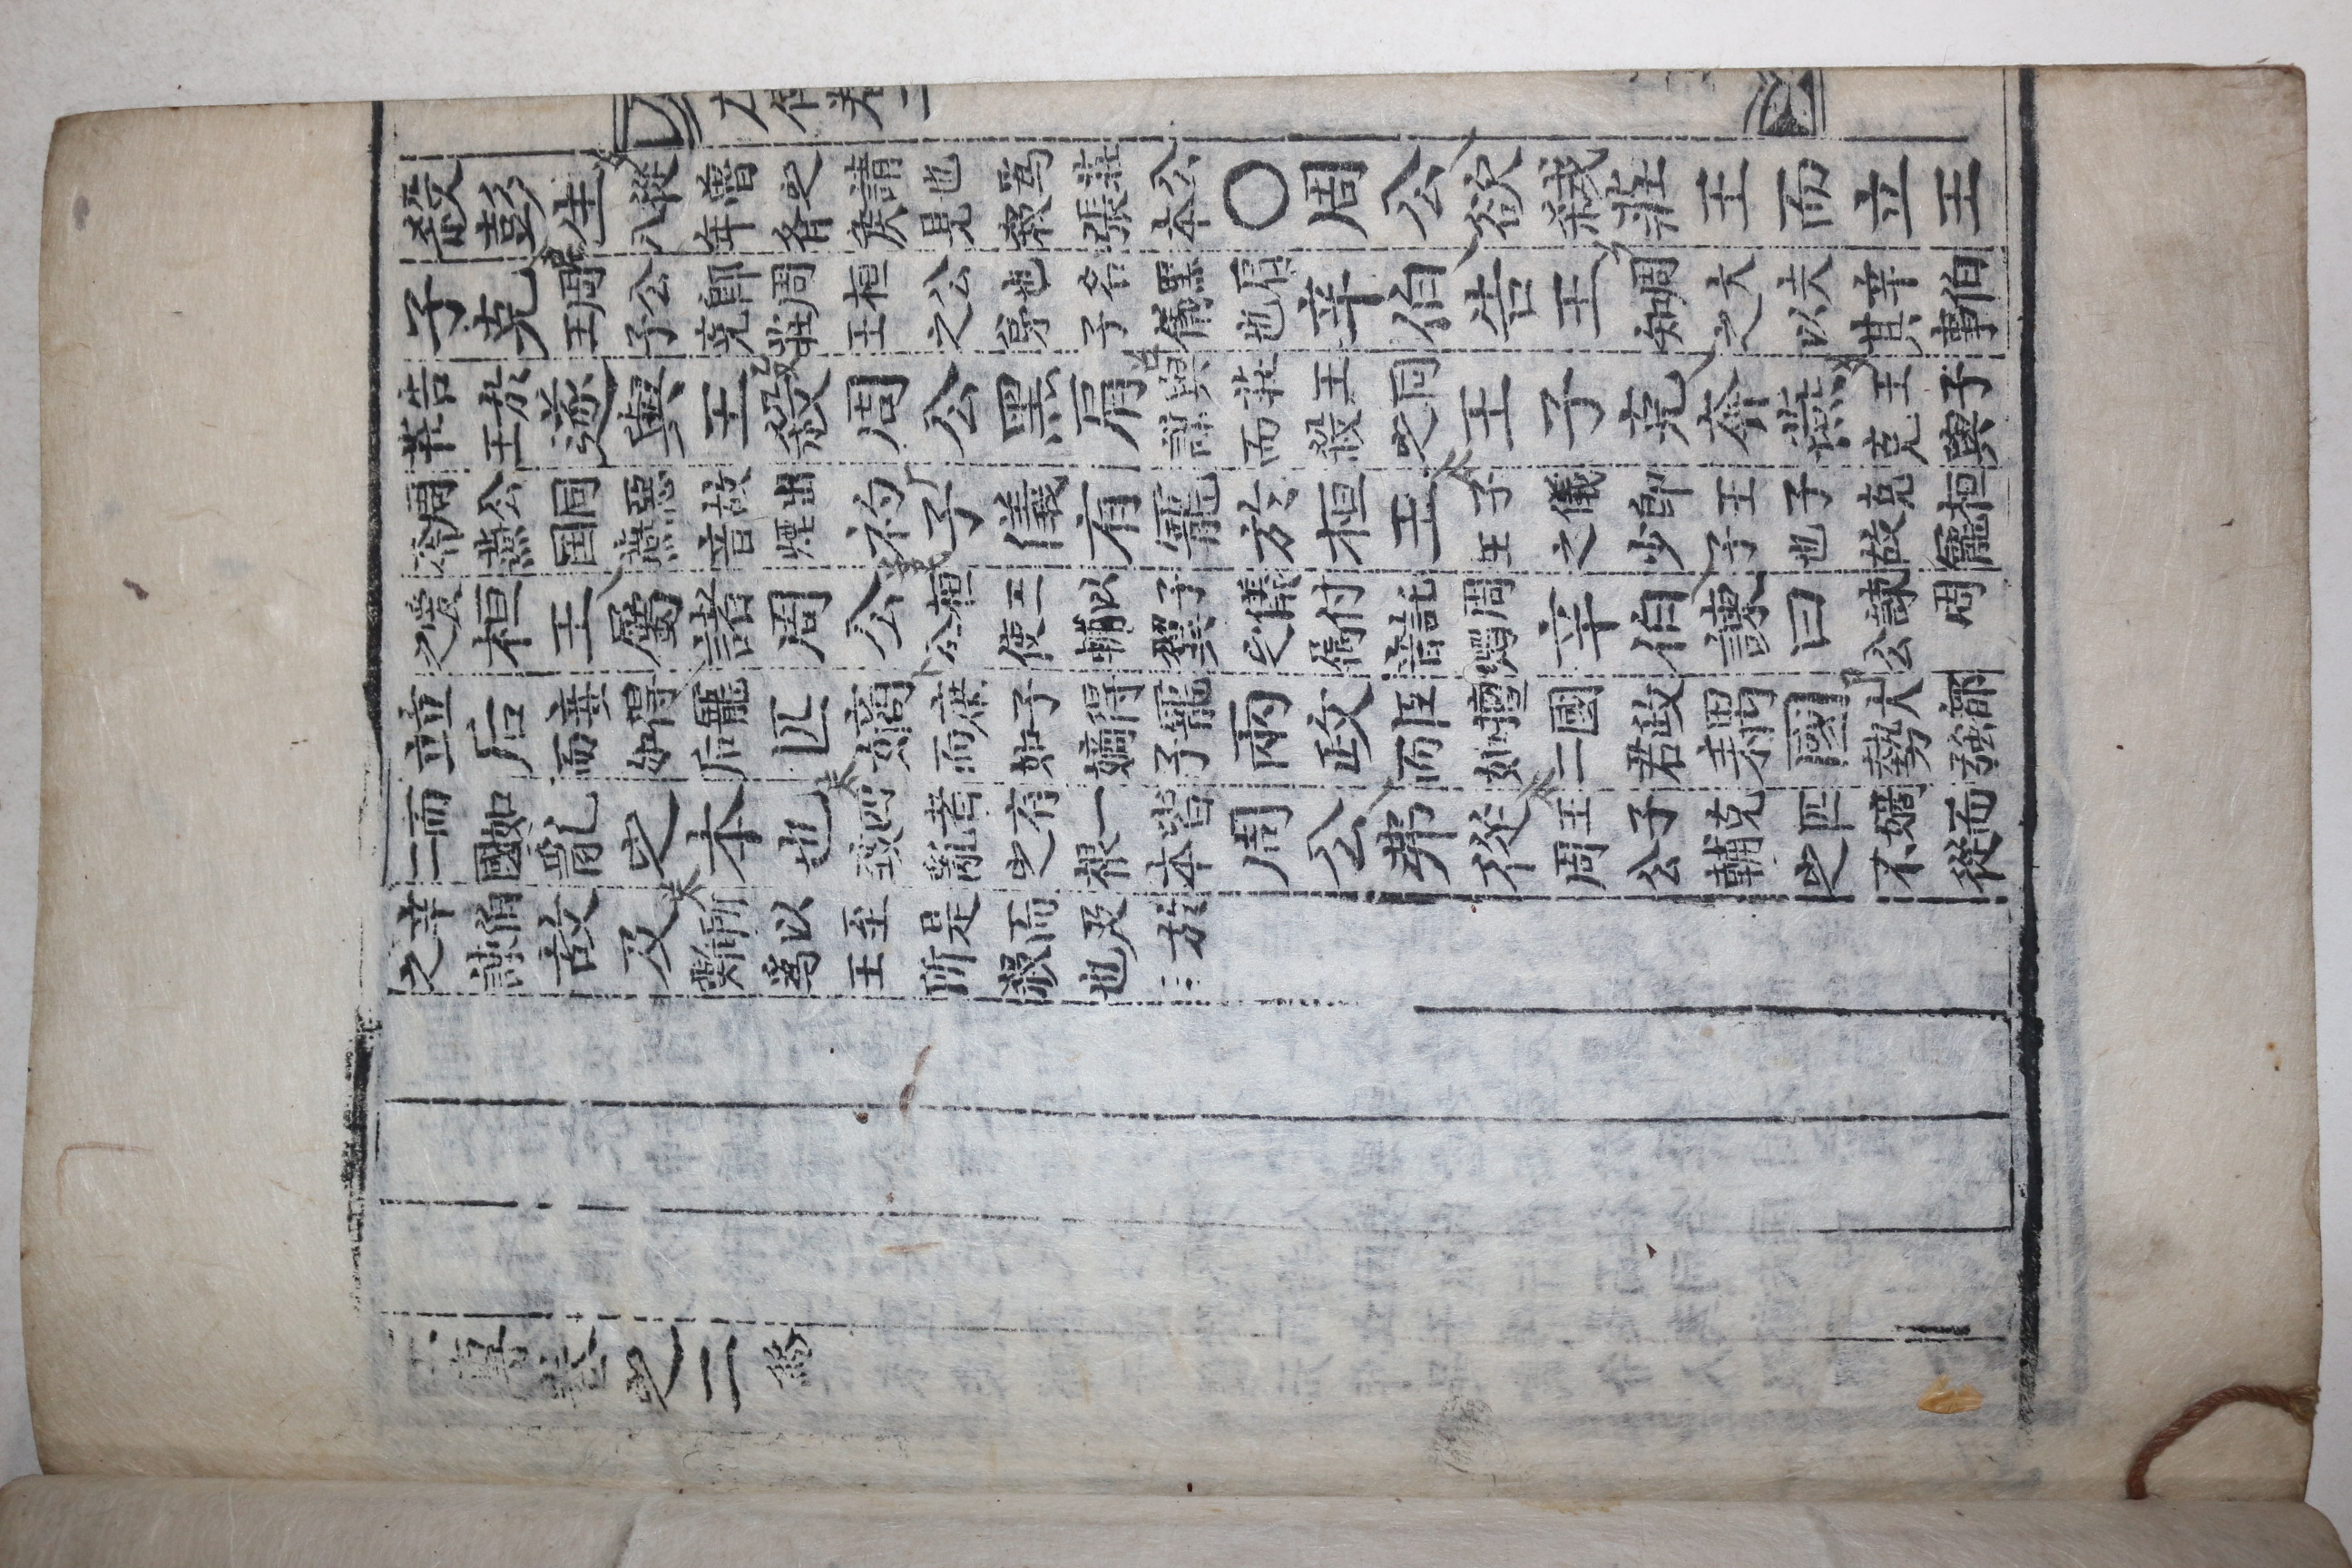 左傳卷二
殺彭生從魯之請也爲莊公八年斉矦見殺張本〇周公欲弑莊王而立王
子克周公即周桓公也名黑肩王子克莊王之弟子儀也辛伯告王周大夫辛伯知之以其事
告於莊王遂與王殺周公黑肩與莊王同謀而殺之王子克奔燕王子克與
周公同惡故出奔燕国燕音煙初子儀有寵於桓王子儀即王子克桓王之少子也故寵
愛之桓王屬諸周公桓王以子儀付託周公使輔翼之屬音燭辛伯諫曰諫周公
竝后妾得寵而如后匹嫡庶子得寵而如嫡子兩政臣擅國政而如二君耦國大都勢強
而如二國亂之本也四者有一皆致亂之根本周公弗從王子克匹嫡而周公輔之不從
辛伯之諫故及所以至是而及於難爲王所殺也
左傳卷之二終